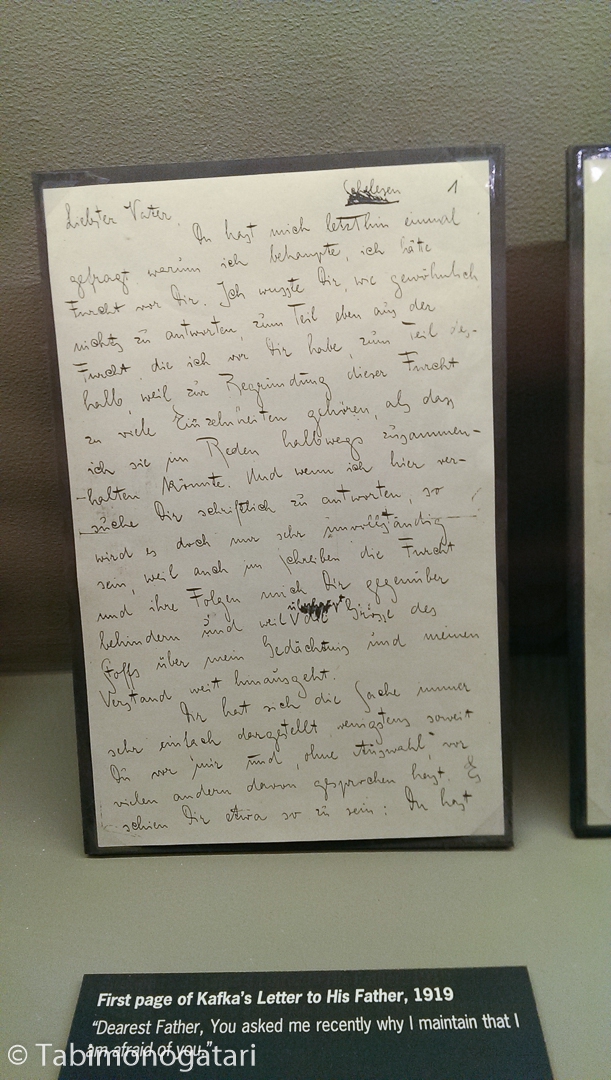 Schelesen 1
Liebster Vater,
Du hast mich letzthin einmal
gefragt, warum ich behaupte, ich hätte
Furcht vor Dir. Ich wusste Dir, wie gewöhnlich,
nichts zu antworten, zum Teil eben aus der
Furcht, die ich vor Dir habe, zum Teil des-
halb, weil zur Begründung dieser Furcht
zu viele Einzelnheiten gehören, als dass
ich sie im Reden halbwegs zusammen-
halten könnte. Und wenn ich hier ver-
suche Dir schriftlich zu antworten, so
wird es doch nur sehr unvollständig
sein, weil auch im Schreiben die Furcht
und ihre Folgen mich Dir gegenüber
behindern und weil die Grösse des
Stoffs über mein Gedächtnis und meinen
Verstand weit hinausgeht.
Dir hat sich die Sache immer
sehr einfach dargestellt, wenigstens soweit
Du vor mir und, ohne Auswahl, vor
vielen andern davon gesprochen hast. Es
schien Dir etwa so zu sein: Du hast
First page of Kafka's Letter to His Father, 1919
"Dearest Father, You asked me recently why I maintain that I
am afraid of you."
© Tabimonogatari